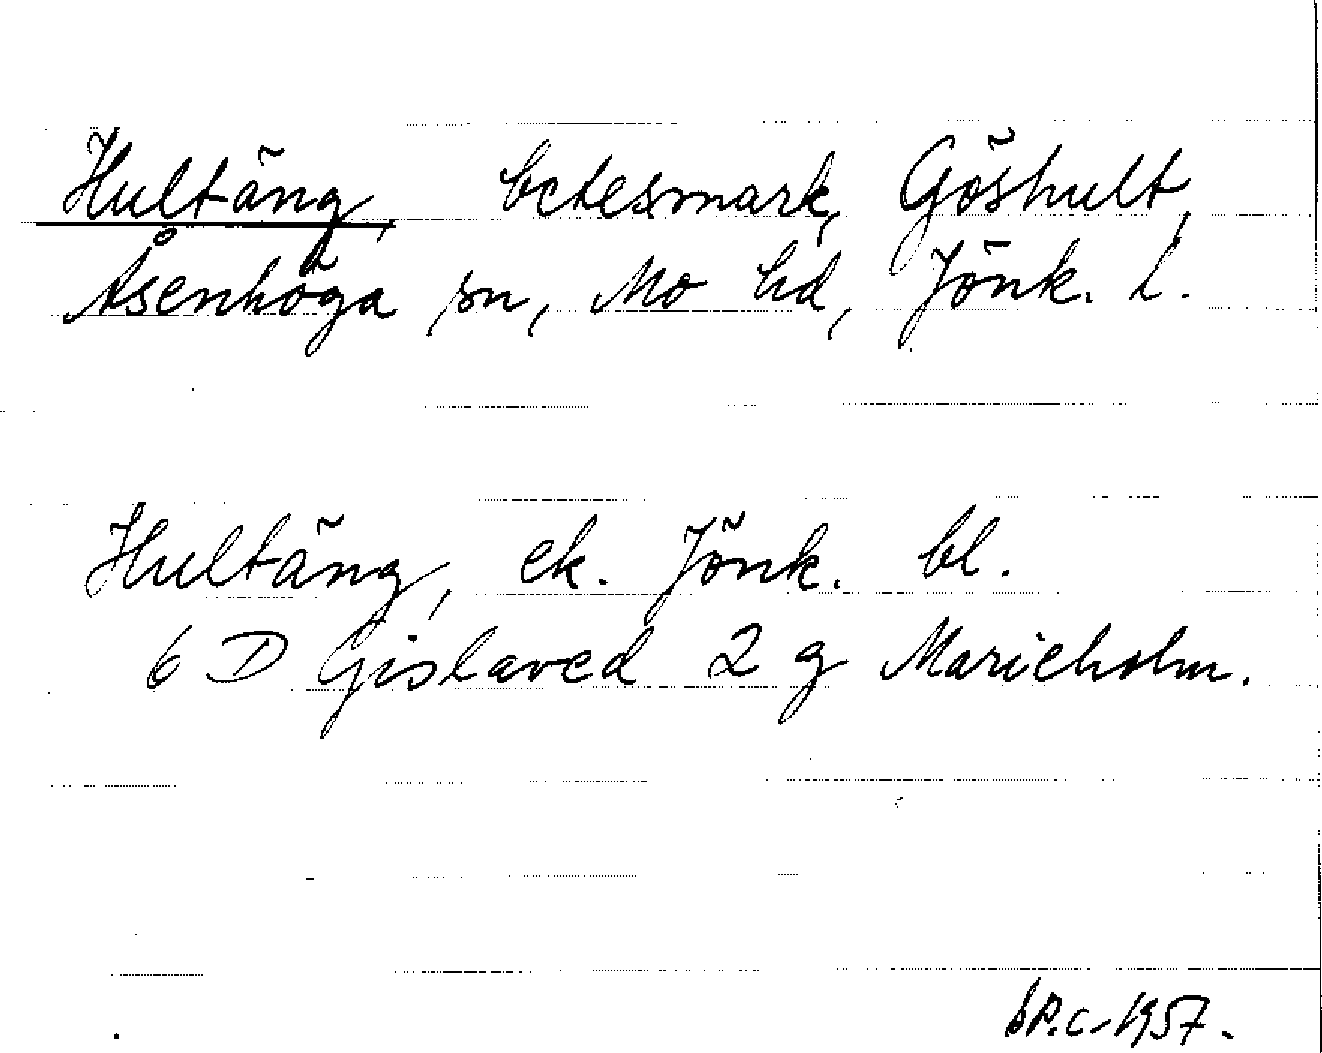 Hultäng, betesmark, Göshult,
Åsenhöga sn, Mo hd, Jönk. l.
Hultäng, ek. Jönk. bl.
6 D Gislaved 2 g Marieholm.
1957.